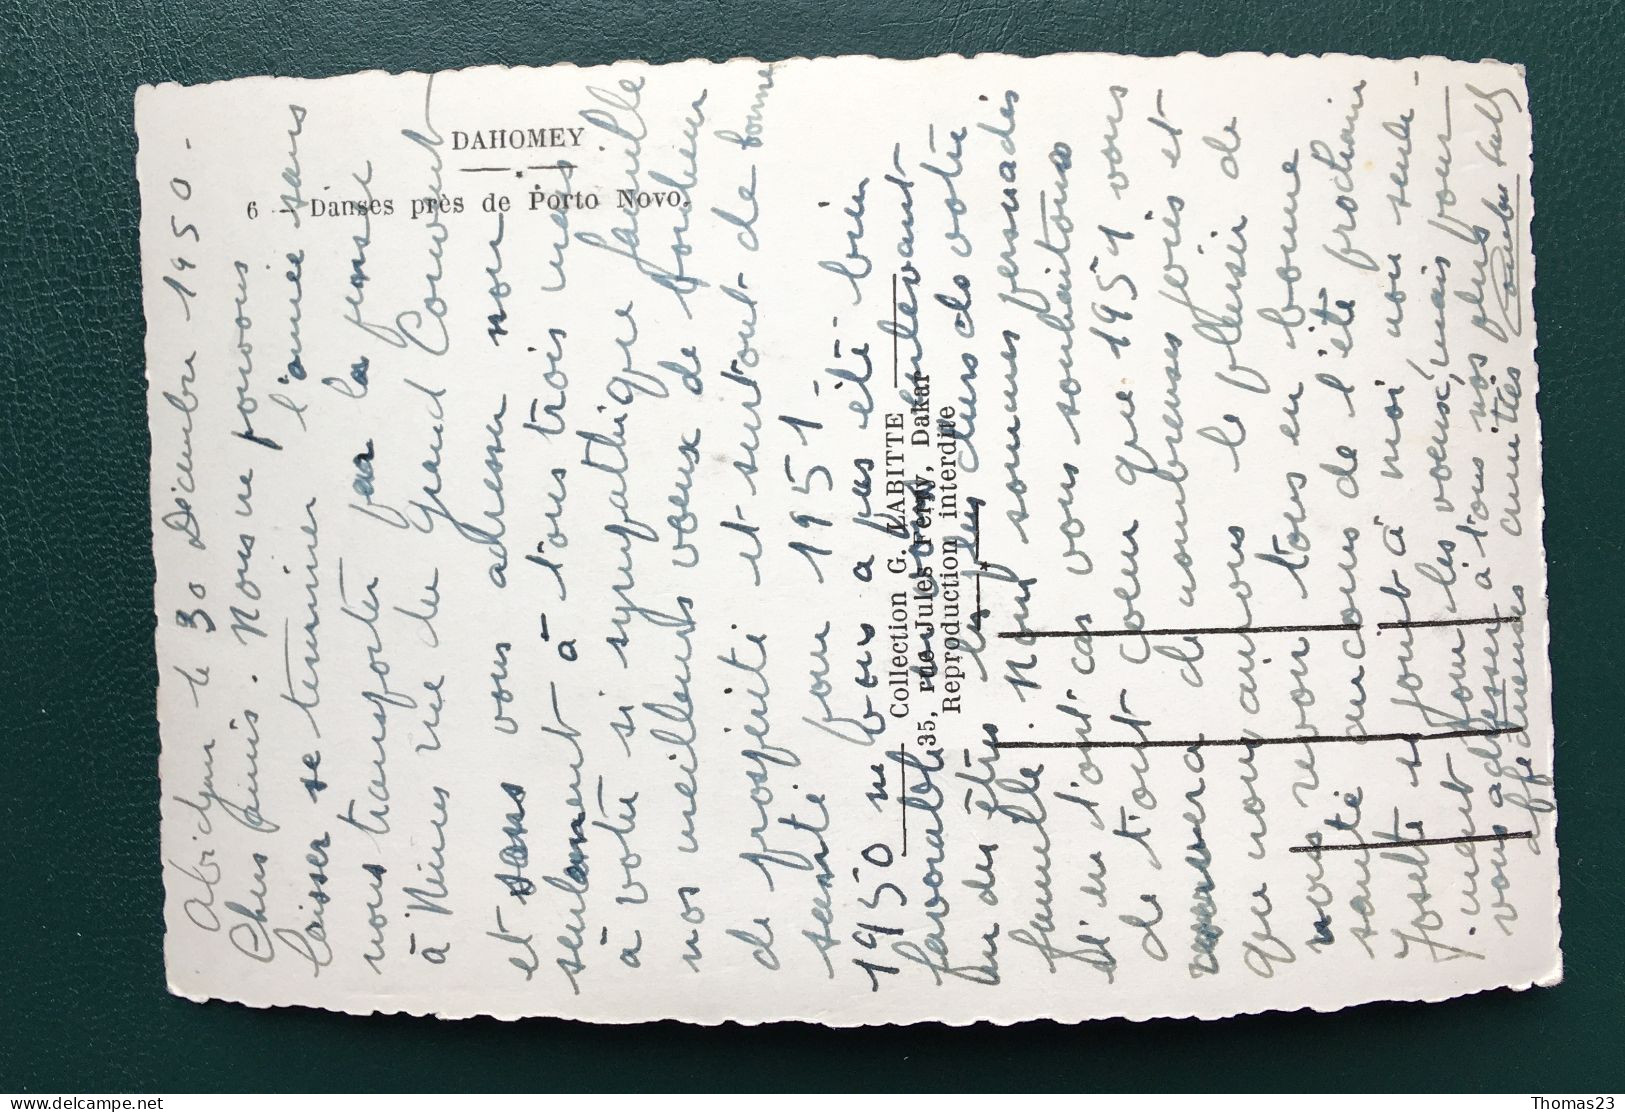 DAHOMEY
6 — Danses près de Porto Novo.
Collection G. LABITTE
35, rue Jules Ferry, Dakar
Reproduction interdite
Abidjan le 30 Décembre 1950 -
Chers amis. Nous ne pouvons
laisser se terminer l'année sans
nous transporter par la pensée
à Nîmes rue du grand Couvent
et sans vous adresser non
seulement à tous trois mais
à votre si sympathique famille
nos meilleurs vœux de bonheur
de prospérité et surtout de bonne
santé pour 1951 -
1950 ne vous a pas été bien
favorable en vous enlevant
un des êtres les plus chers de votre
famille. Nous sommes persuadés
d'en tout cas vous souhaitons
de tout cœur que 1951 vous
verra de nombreuses joies et
que nous aurons le plaisir de
vous revoir tous en bonne
santé au cours de l'été prochain
Josette se joint à moi non seule-
ment pour les vœux, mais pour
vous adresser à tous nos plus
affectueuses amitiés
Thomas23